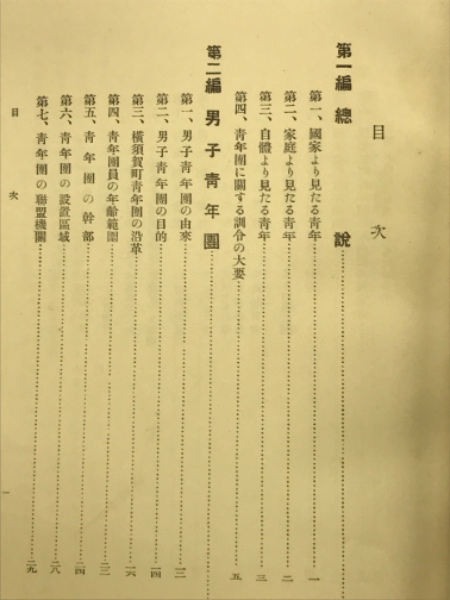 目次
第一編 總說
第一、國家より見たる青年 一
第二、家庭より見たる青年 二
第三、自體より見たる青年 三
第四、青年團に關する訓令の大要 五
第二編 男子青年團
第一、男子青年團の由來 一三
第二、男子青年團の目的 一四
第三、橫須賀町青年團の沿革 一六
第四、青年團員の年齡範圍 二三
第五、青年團の幹部 二四
第六、青年團の設置區域 二八
第七、青年團の聯盟機關 二九
目次
一